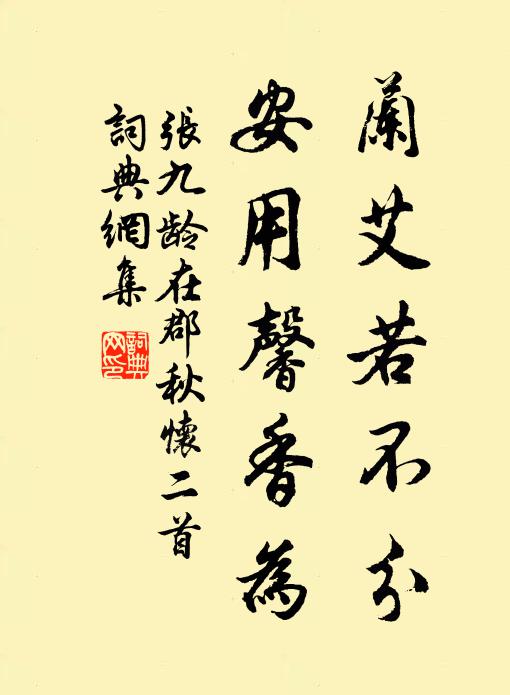 蘭艾若不分
安用馨香為
張九龄在郡秋懷二首
詞典網集
詞典網印